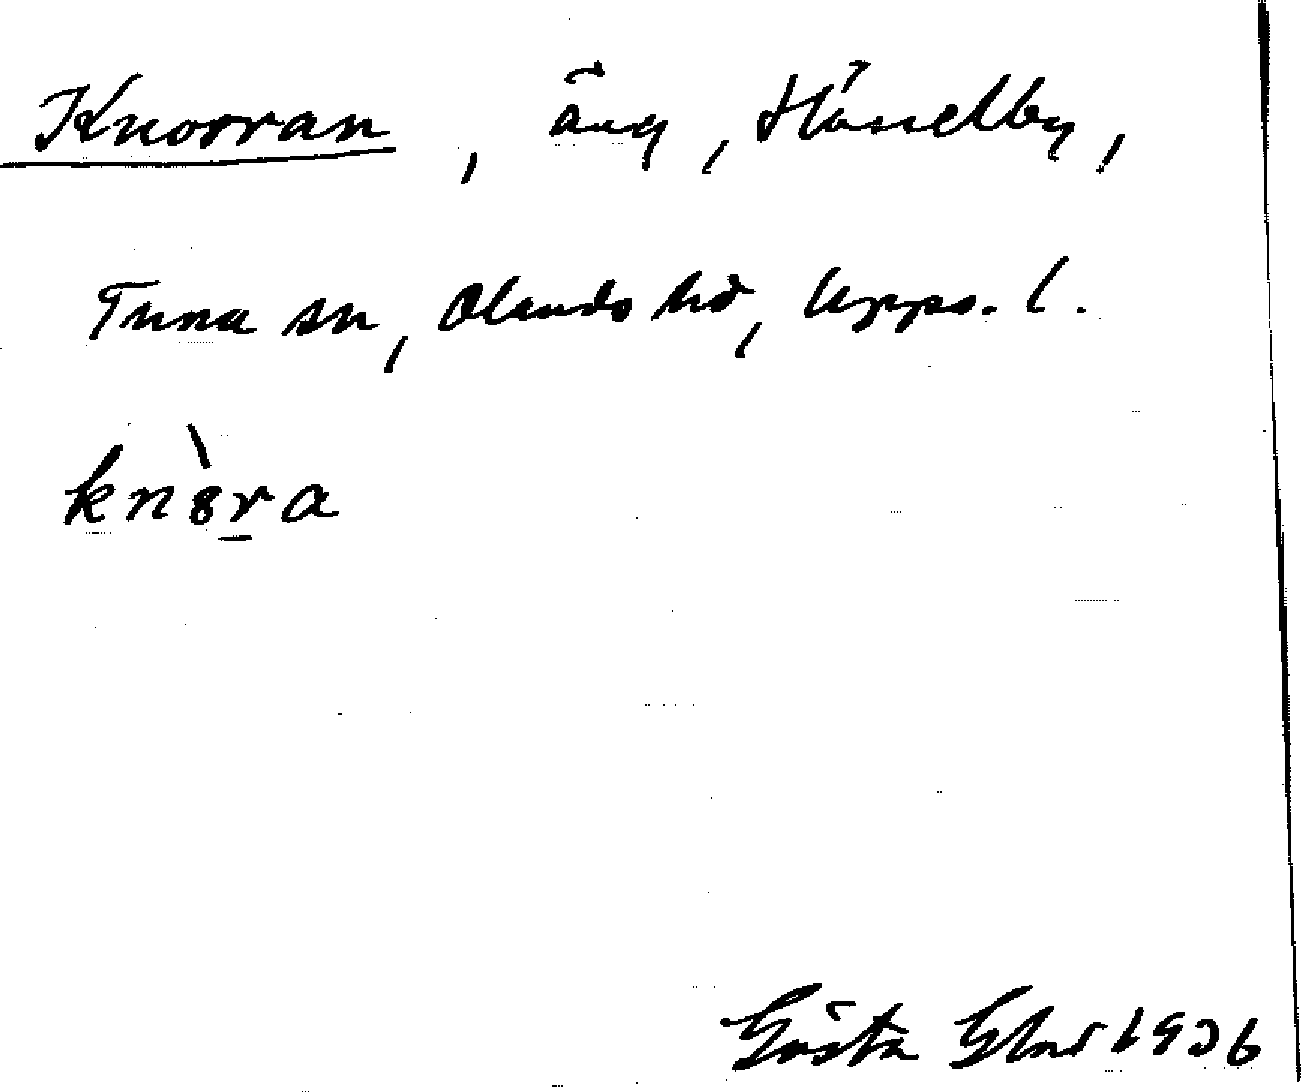 Knorran, äng, Hässelby,
Tuna sn, Olands hd, Upps. l.
knò̱ra
Gösta 1936